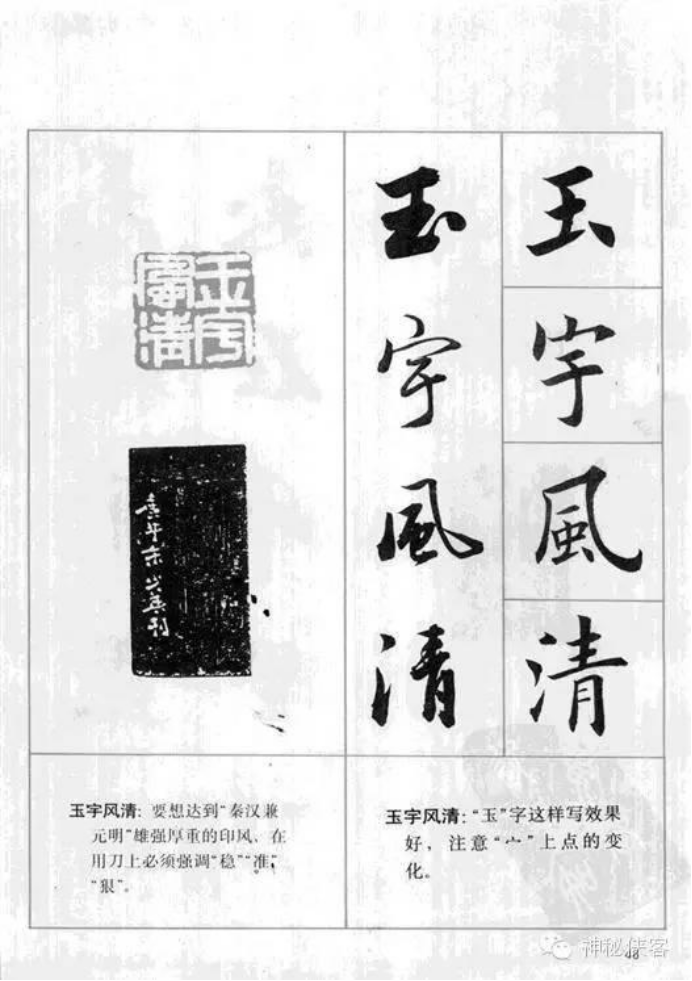 玉宇風清
玉宇風清
玉宇風清
玉宇风清：“玉”字这样写效果
好，注意“宀”上点的变
化。
玉宇风清：要想达到“秦汉兼
元明”雄强厚重的印风、在
用刀上必须强调“稳”“准”，
“狠”。
神秘侠客
48